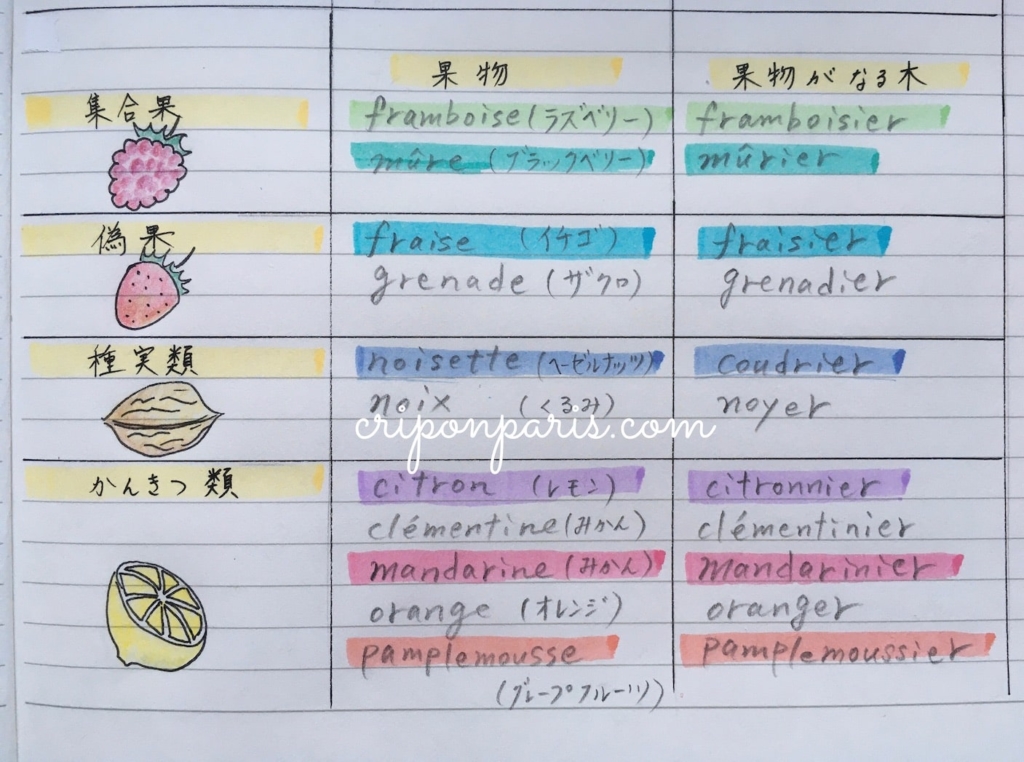 果物 果物がなる木
集合果 framboise (ラズベリー) framboisier
mûre (ブラックベリー) mûrier
偽果 fraise (イチゴ) fraisier
grenade (ザクロ) grenadier
種実類 noisette (ヘーゼルナッツ) coudrier
noix (くるみ) noyer
criponparis.com
かんきつ類 citron (レモン) citronnier
clémentine (みかん) clémentinier
mandarine (みかん) mandarinier
orange (オレンジ) oranger
pamplemousse pamplemoussier
(グレープフルーツ)